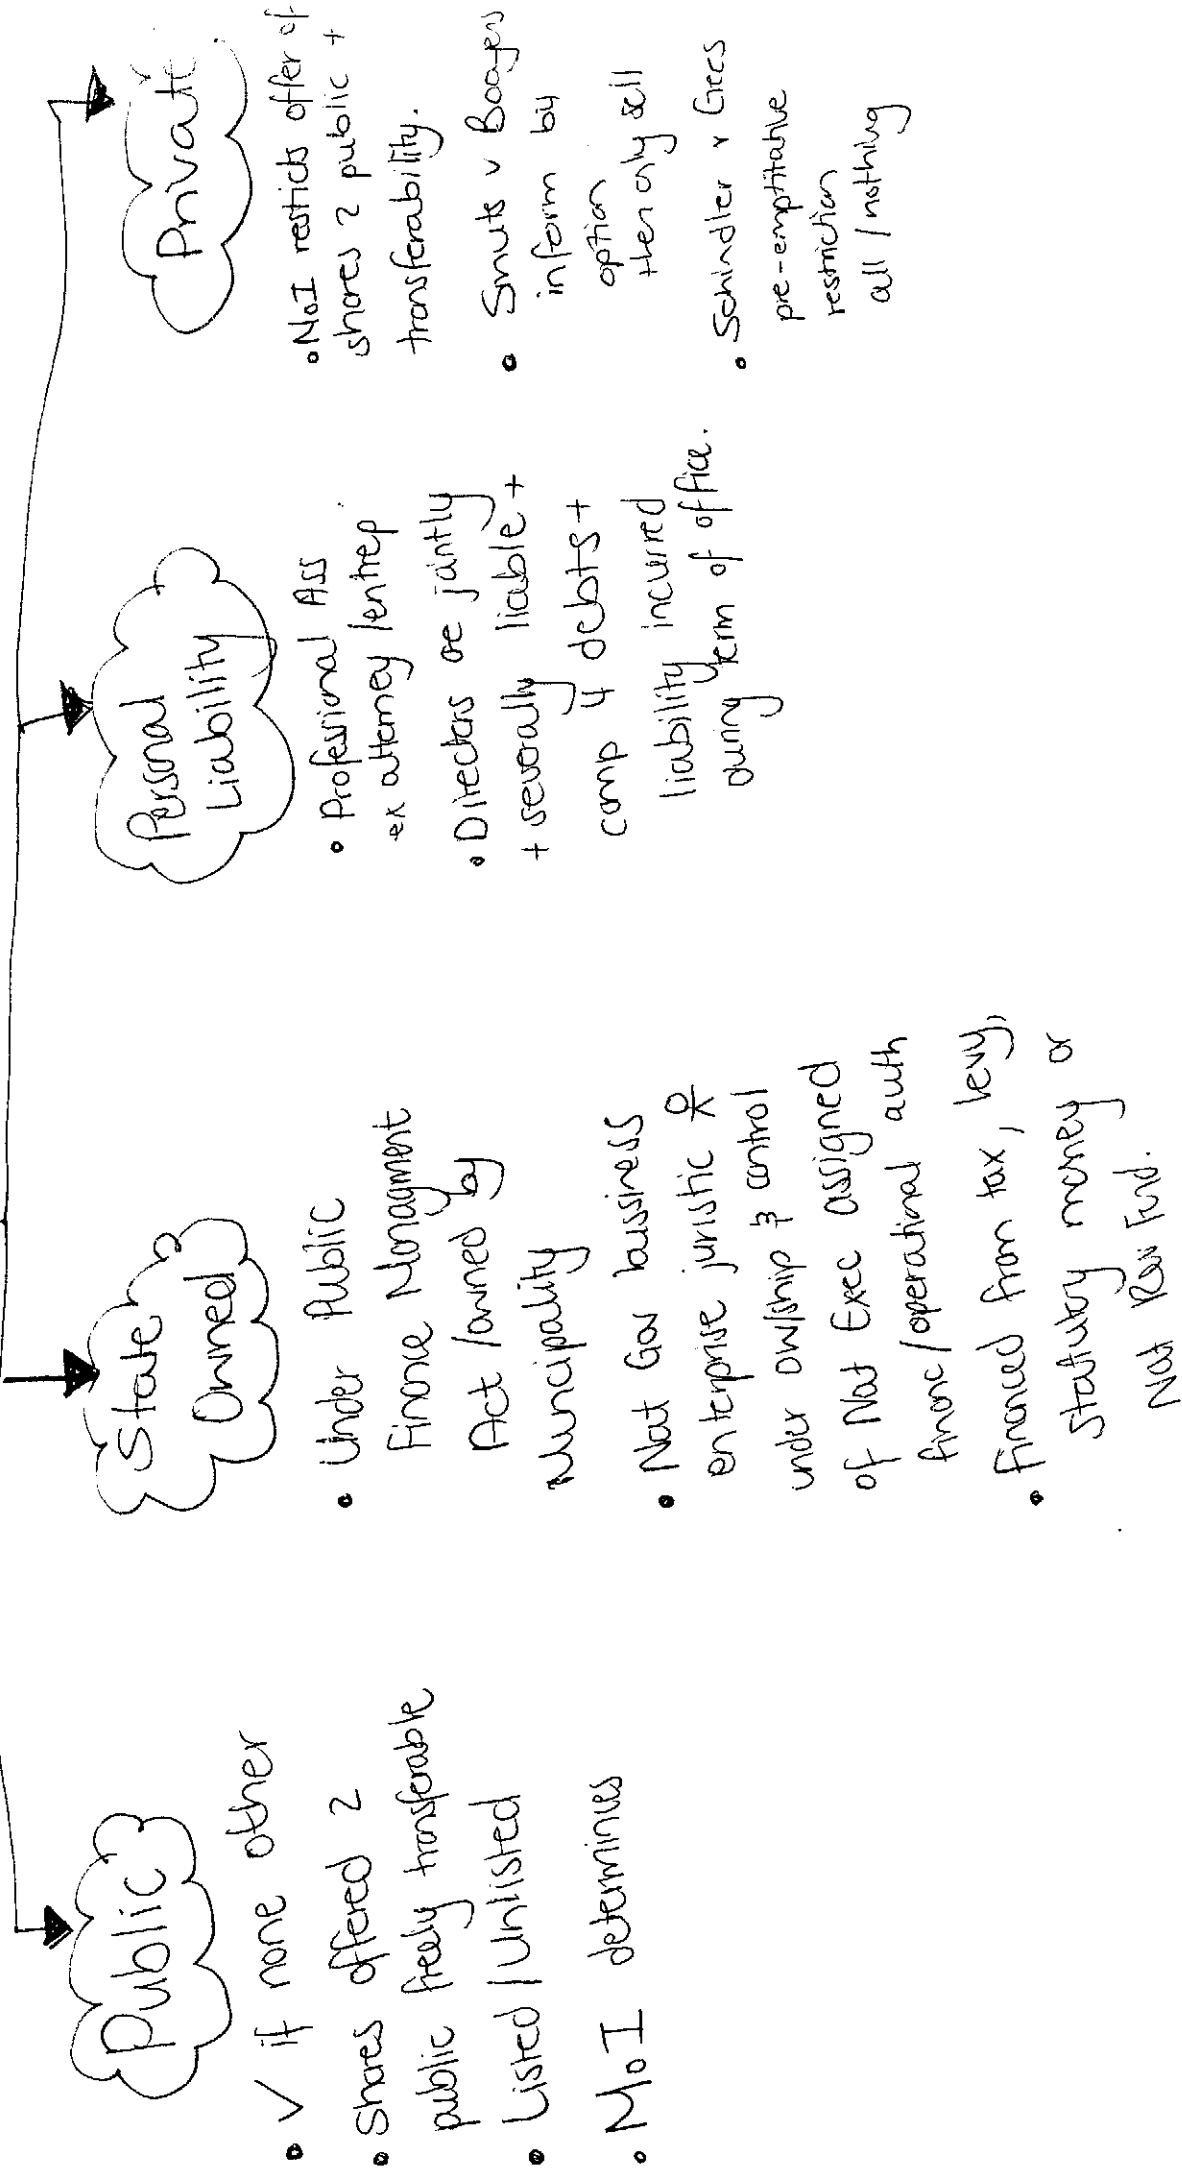 Public
• √ if none other
• Shares offered 2
public freely transferable
• Listed / Unlisted
• MoI determines
State
Owned
• Under Public
Finance Managment
Act / owned by
Muncipality
• Nat Gov bussiness
enterprise juristic
under ow/ship & control
of Nat Exec assigned
financ / operational auth
• Financed from tax, levy,
statutory money or
Nat Rev Fund.
Personal
Liability
• Professional Ass
ex attorney / entrep
• Directors are jointly
+ severally liable +
comp 4 debts +
liability incurred
during term of office.
Private
• MoI resticts offer of
shares 2 public +
transferability.
• Smuts v Booyens
inform
option
then only sell
• Schindler v Grees
pre-emptitative
restriction
all / nothing